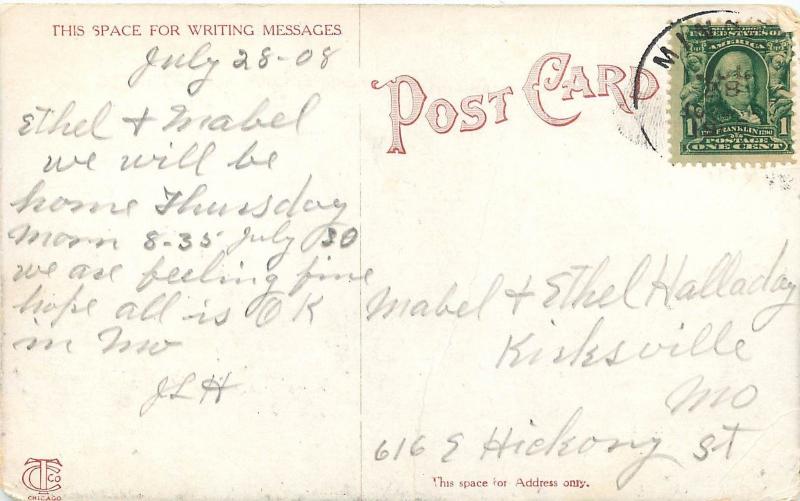 THIS SPACE FOR WRITING MESSAGES
July 28-08
Ethel & Mabel
we will be
home Thursday
Morn 8-35 July 30
we are feeling fine
hope all is OK
in Mo
JLH
CTCo
CHICAGO
POST CARD
UNITED STATES OF
AMERICA
FRANKLIN
1 1
POSTAGE
ONE CENT
Mabel & Ethel Halladay
Kirksville
Mo
616 E Hickory St
This space for Address only.